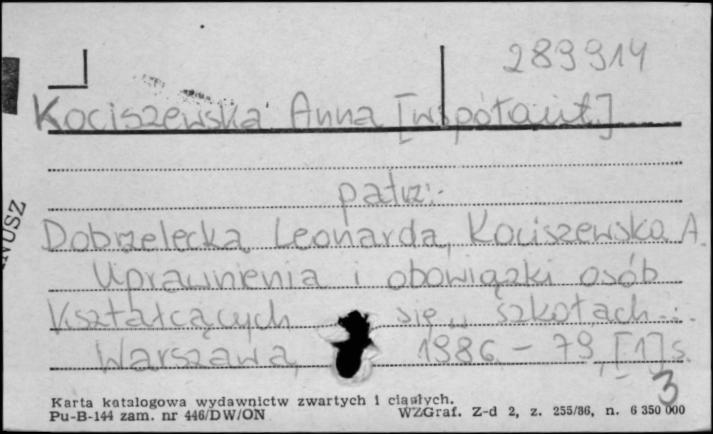 289914
Kociszewska Anna [współaut.]
patrz:
Dobrzelecka Leonarda, Kociszewska A.
Uprawnienia i obowiązki osób
kształcących się w szkołach...
Warszawa, 1986 - 79, [1] s.
3
Karta katalogowa wydawnictw zwartych i ciągłych.
Pu-B-144 zam. nr 446/DW/ON WZGraf. Z-d 2, z. 255/86, n. 6 350 000